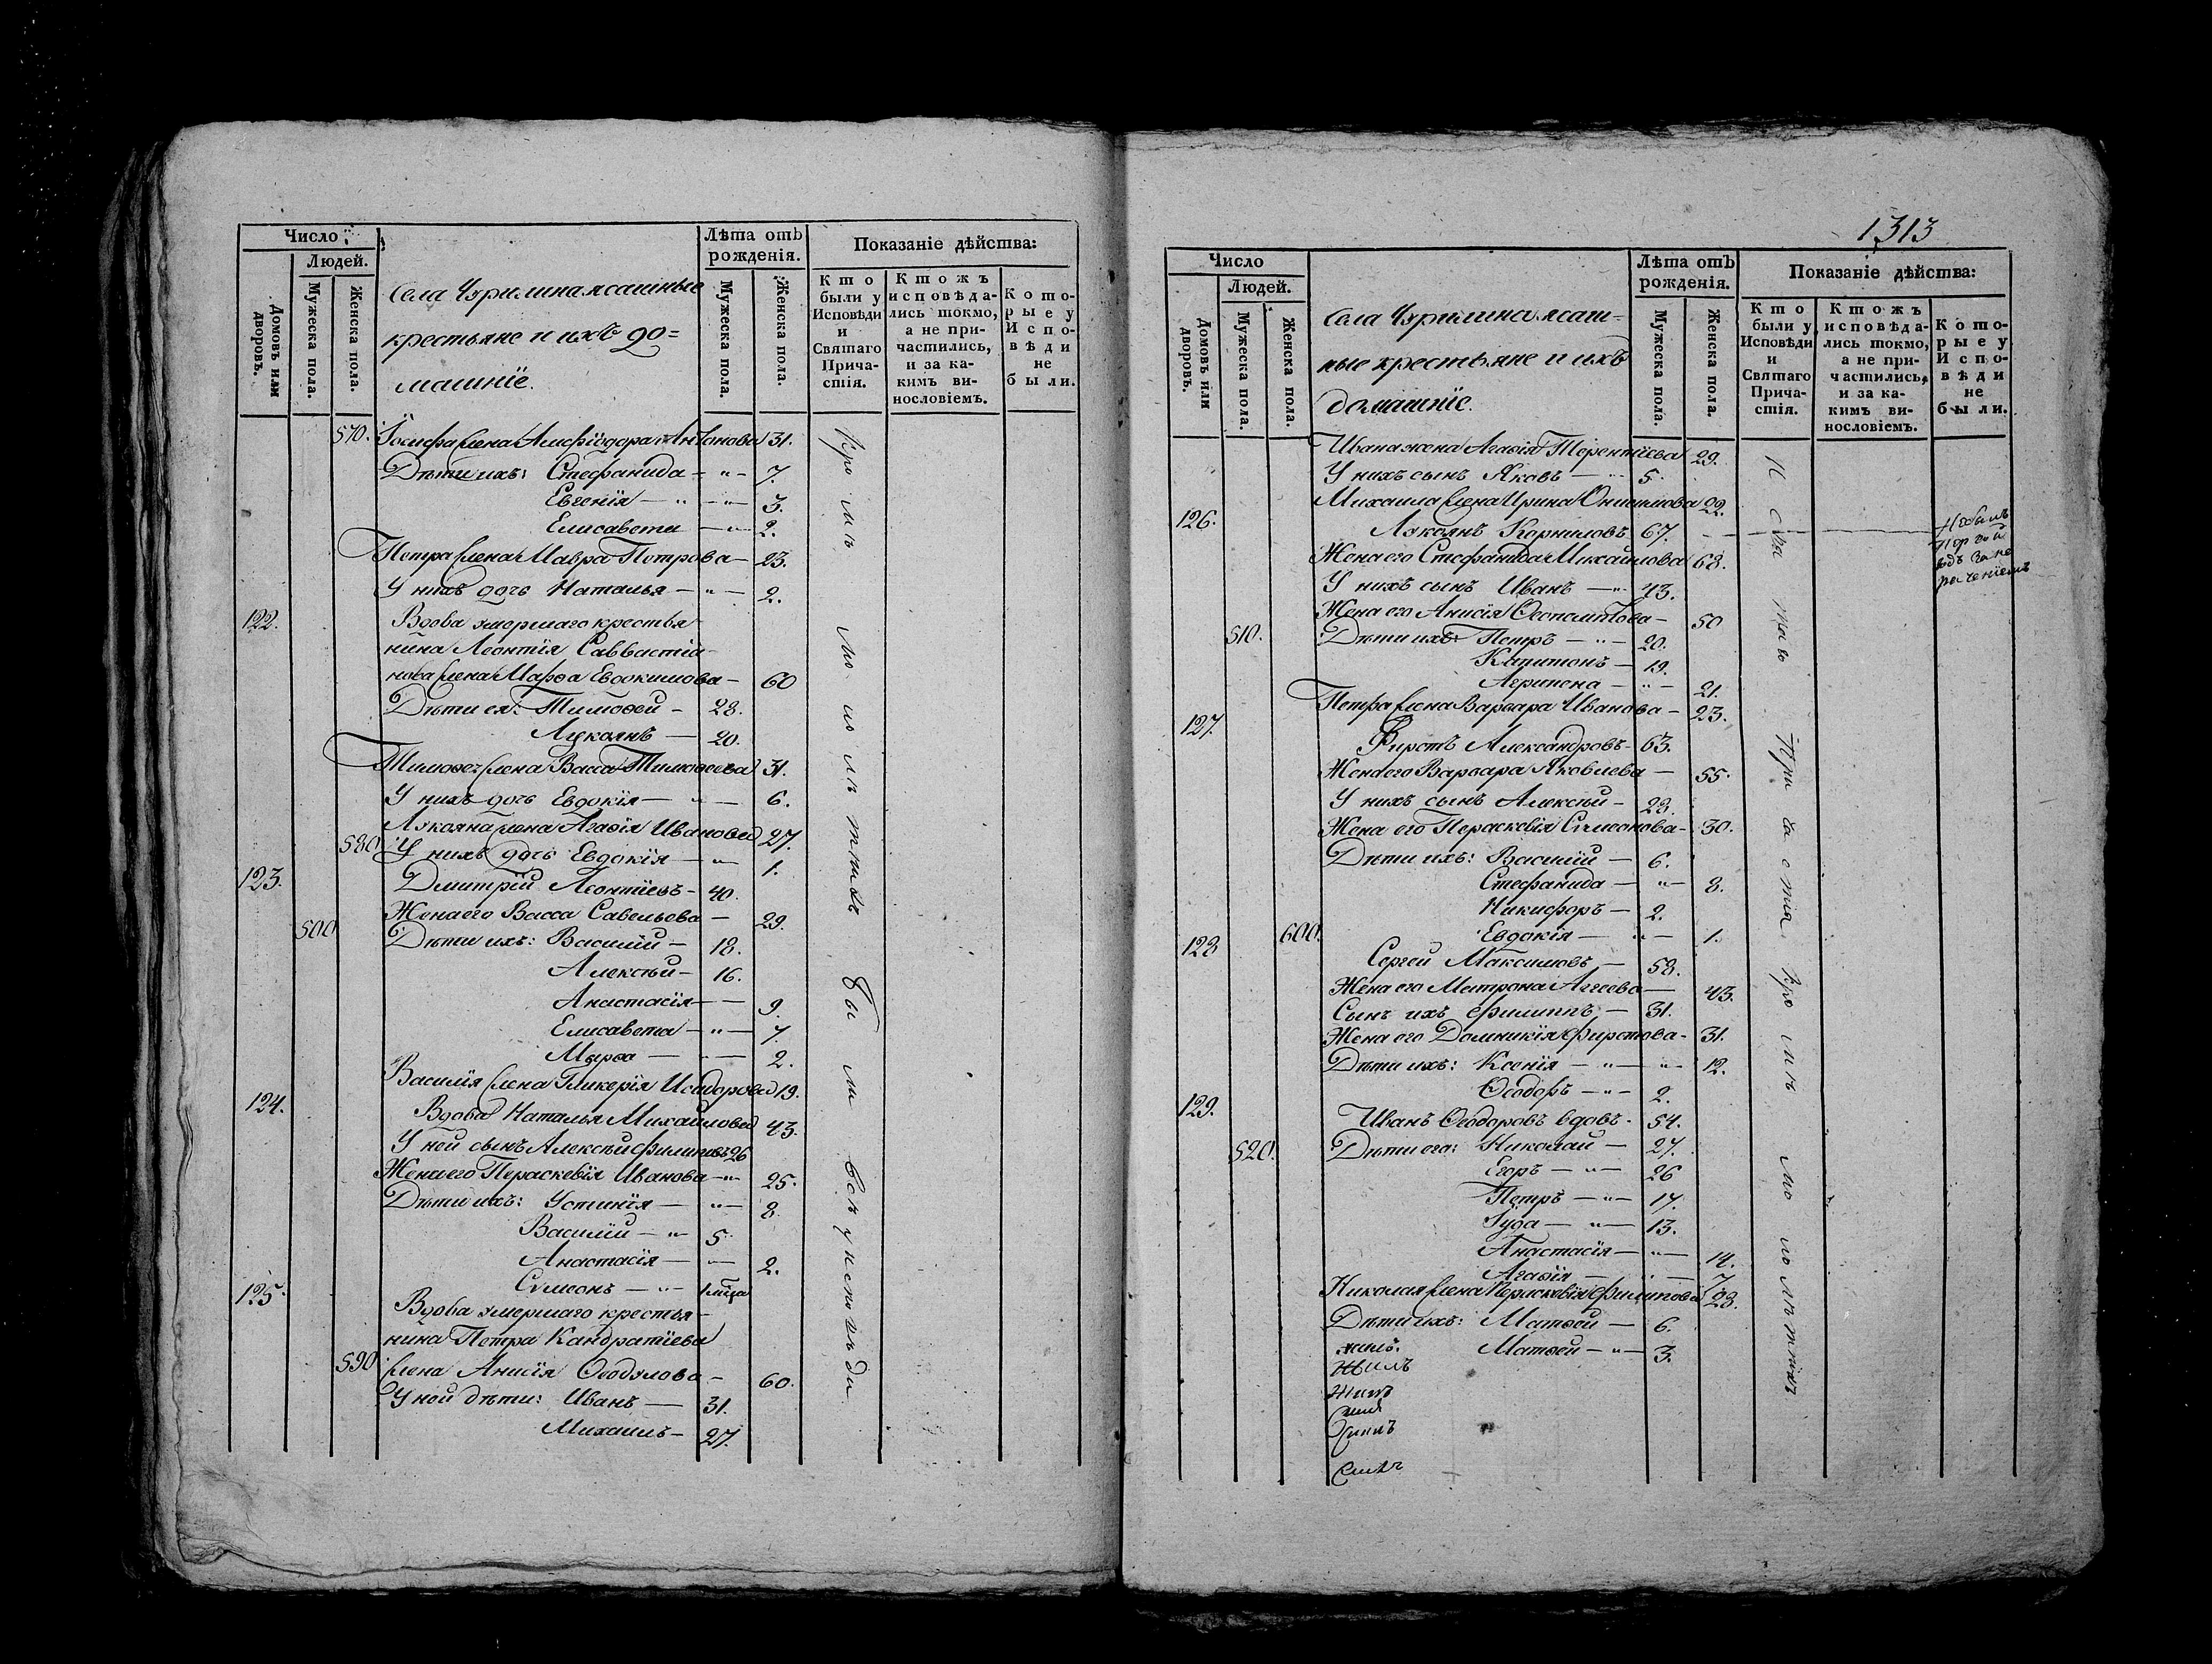 Число
Людей.
Домовъ или дворовъ.
Мужеска пола.
Женска пола.
Села Чурилина ясашные
крестьяне и ихъ до=
машнїе.
Лѣта отъ
рожденїя.
Мужеска пола.
Женска пола.
Показанїе дѣйства:
Кто
были у
Исповѣди
и
Святаго
Прича-
стїя.
Ктожъ
исповѣда-
лись токмо,
а не при-
частились,
и за ка-
кимъ ви-
нословїемъ.
Кото-
рые у
Испо-
вѣди
не
были.
570. Іосифа жена Антонова 31.
Дѣти ихъ: Стефанида - " - 7.
Евгенїя - " - 3.
Елисавета - " - 2.
Петра жена Мавра Петрова - 23.
У нихъ дочь Наталья - " - 2.
122. Вдова умершаго крестья-
нина Леонтїя Саввастїа-
нова жена Марѳа Евдокимова - 60
Дѣти ея: Тимоѳей - 28.
Лукоянъ - 20.
Тимоѳея жена Васса Тимоѳеева 31.
У нихъ дочь Евдокїя - " - 6.
Лукояна жена Агаѳїя Иванова 27.
580 У нихъ дочь Евдокїя - " - 1.
123. Дмитрїй Леонтїевъ - 40.
Жена его Васса Савельева - 29.
500 Дѣти ихъ: Василїй - 18.
Алексѣй - 16.
Анастасїя - 9.
Елисавета - " - 7.
Марѳа - " - 2.
Василїя жена Гликерїя Исидорова 19.
124. Вдова Наталья Михайлова 43.
У ней сынъ Алексѣй Филиповъ 26
Жена его Параскевїя Иванова - " - 25.
Дѣти ихъ: Устинїя - " - 8.
Василїй - " - 5.
Анастасїя - " - 2.
Сѵмеонъ - " -
125. Вдова умершаго крестья-
нина Петра Кандратїева
590 жена Анисїя Ѳеодулова - 60.
У ней дѣти: Иванъ - 31.
Михаилъ - 27.
кромѣ малолѣтныхъ были всѣ у исповѣди
1313
Число
Людей.
Домовъ или дворовъ.
Мужеска пола.
Женска пола.
Села Чурилина ясаш-
ные крестьяне и ихъ
домашнїе.
Лѣта отъ
рожденїя.
Мужеска пола.
Женска пола.
Показанїе дѣйства:
Кто
были у
Исповѣди
и
Святаго
Прича-
стїя.
Ктожъ
исповѣда-
лись токмо,
а не при-
частились,
и за ка-
кимъ ви-
нословїемъ.
Кото-
рые у
Испо-
вѣди
не
были.
Ивана жена Агаѳїя Терентїева 29.
У нихъ сынъ Яковъ - 5.
Михаила жена Ирина Онисимова 22.
126. Лукоянъ Корниловъ 67.
Жена его Стефанида Михайлова 68.
У нихъ сынъ Иванъ - " - 43.
Жена его Анисїя - 50
510. Дѣти ихъ: Петръ - " - 20.
Капитонъ - 19.
Агрипена - " - 21.
Петра жена Варвара Иванова - 23.
127. Фирстъ Александровъ - 63.
Жена его Варвара Яковлева - 55.
У нихъ сынъ Алексѣй - 28.
Жена его Параскевїя Сѵмеонова - 30.
Дѣти ихъ: Василїй - 6.
Стефанида - " - 8.
Никифоръ - 2.
600. Евдокїя - " - 1.
128 Сергей Максимовъ - 58.
Жена его Матрона Агеева - 43.
Сынъ ихъ Филиппъ - 31.
Жена его Домникїя Фирстова - 31.
Дѣти ихъ: Ксенїя - " - " - 12.
Ѳеодоръ - " - 2.
129. Иванъ Ѳеодоровъ вдовъ - 54.
520. Дѣти его: Николай - 27.
Егоръ - " - 26
Петръ - " - 17.
Іуда - " - 13.
Анастасїя - " - 14.
Агаѳїя - " - 7
Николая жена Параскевїя Филипова 28.
Дѣти ихъ: Матѳей - 6.
Матѳей - " - 3.
И Святаго Причастїя кромѣ малолѣтныхъ